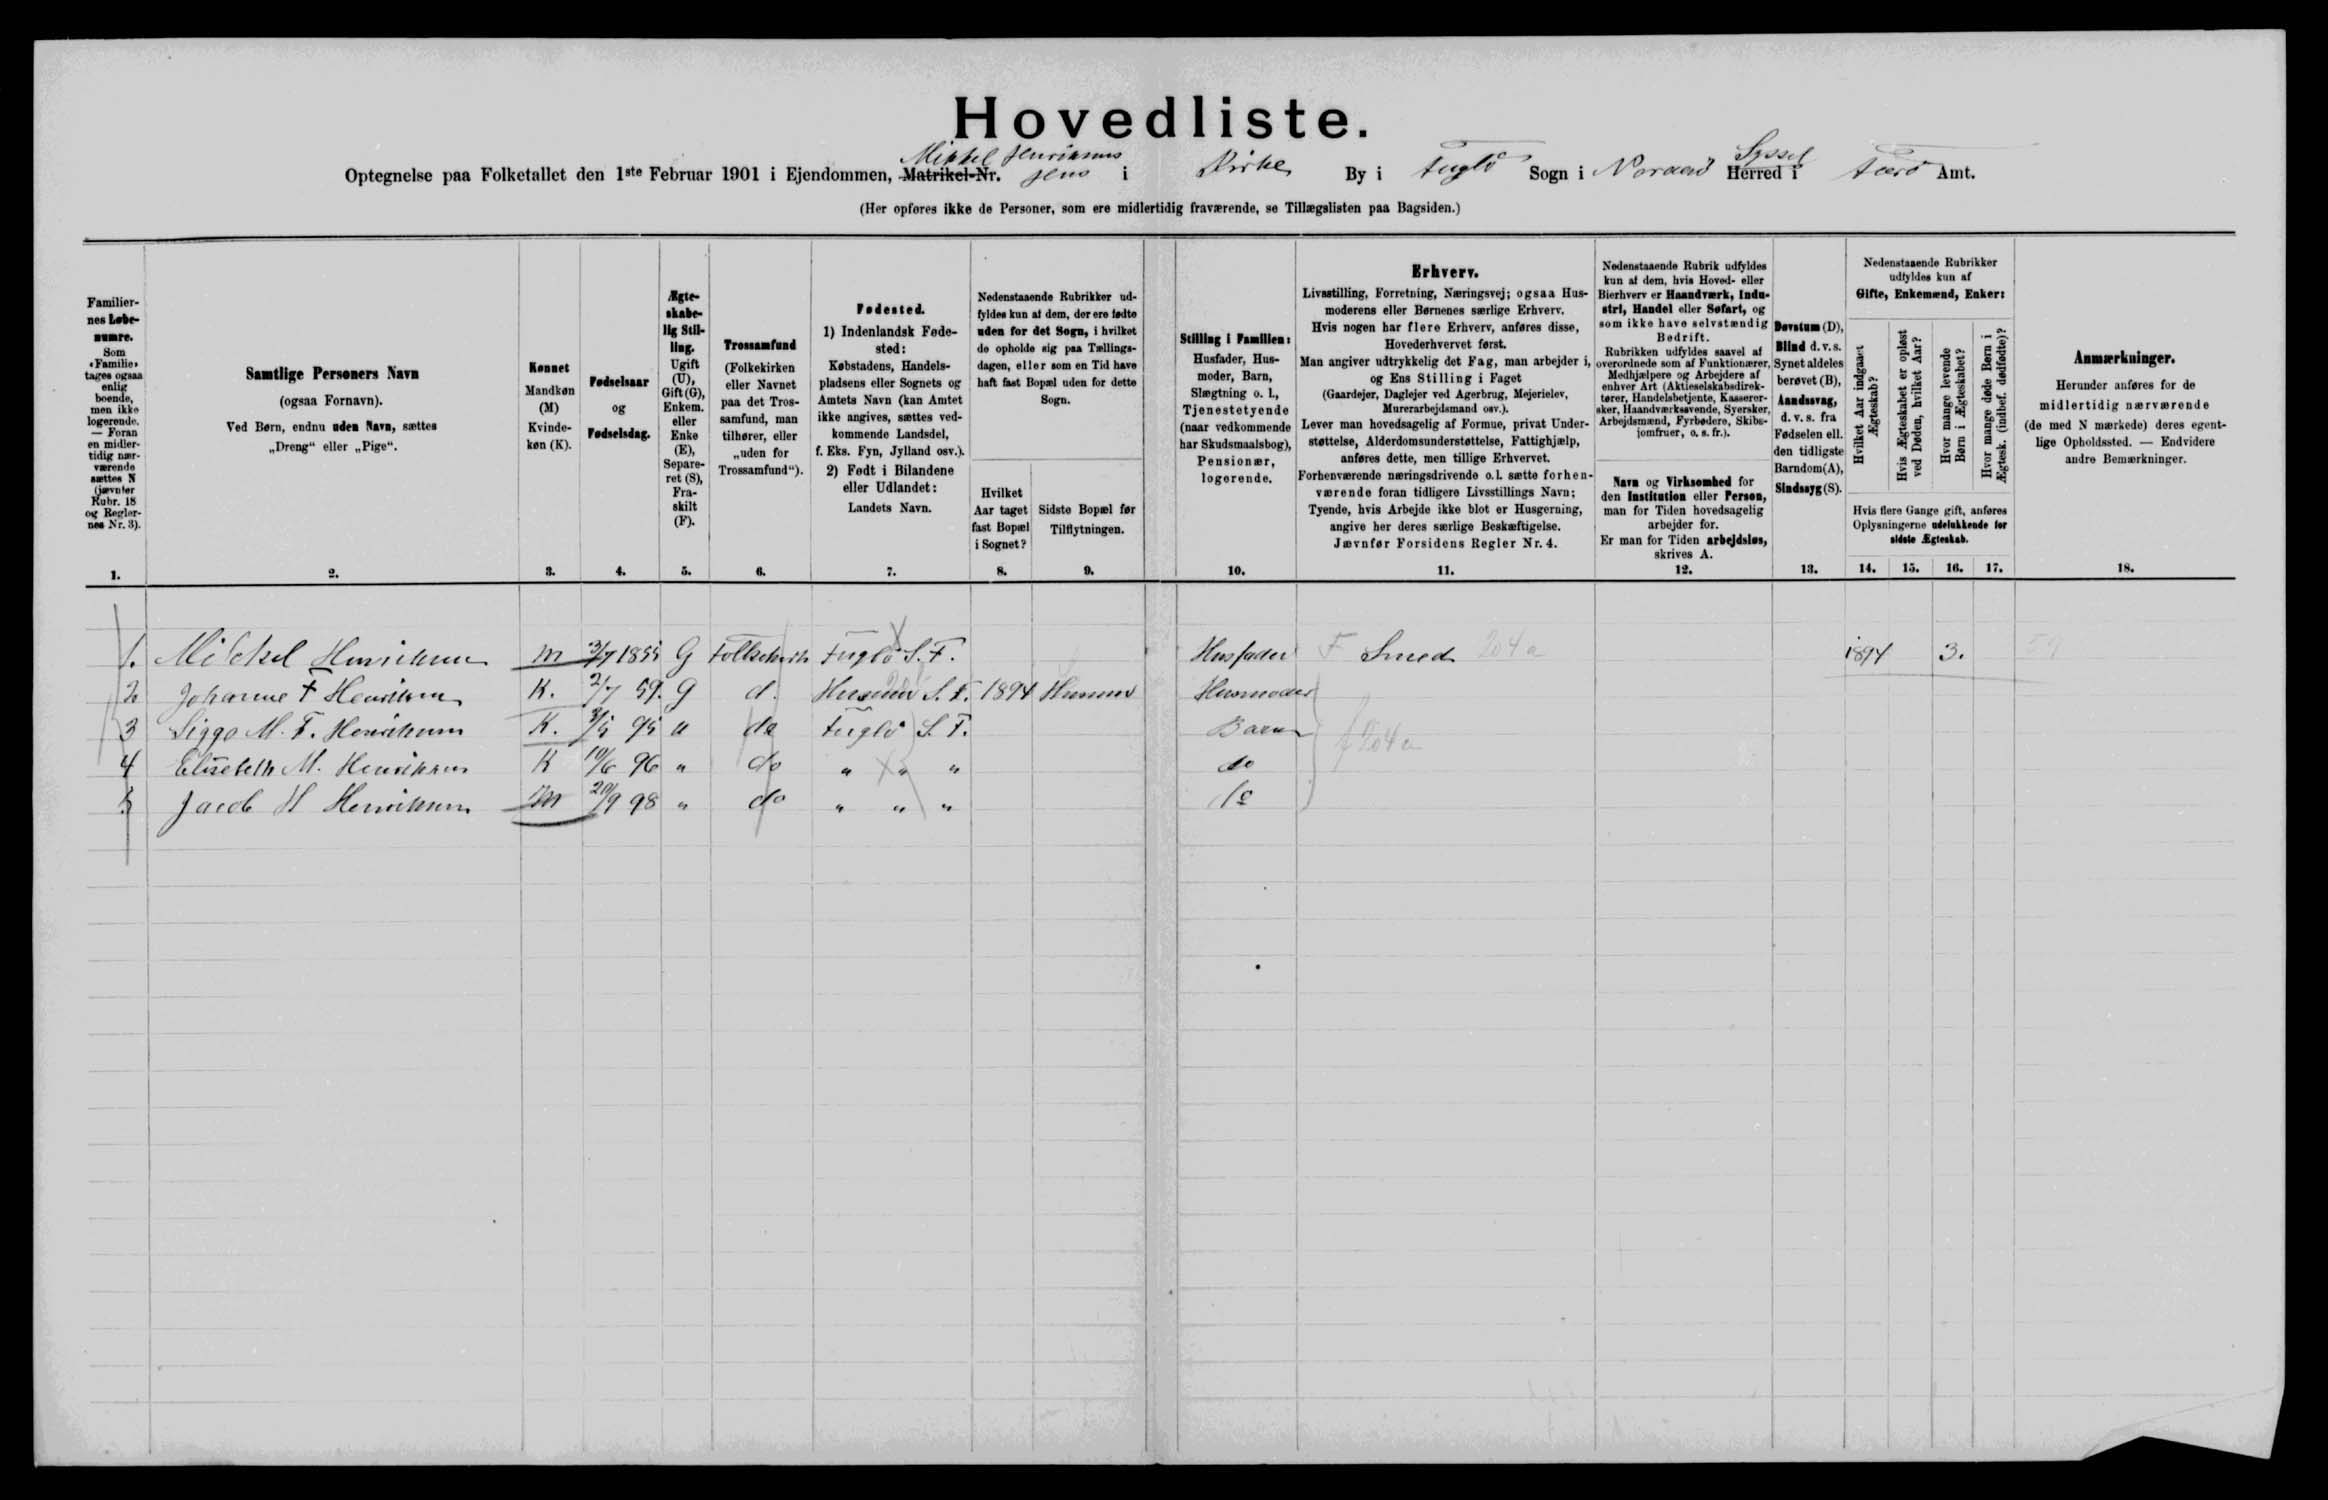 Hovedliste.
Mikkel Henriksens Syssel
Optegnelse paa Folketallet den 1ste Februar 1901 i Ejendommen, Matrikel-Nr. Hus i Kirke By i Fuglö Sogn i Norderö Herred i Færö Amt.
(Her opføres ikke de Personer, som ere midlertidig fraværende, se Tillægslisten paa Bagsiden.)
Familiernes Løbenumre.
Som
«Familie»
tages ogsaa
enlig
boende,
men ikke
logerende.
— Foran
en midlertidig nærværende
sættes N
(jævnfør
Rubr. 18
og Reglernes Nr. 3).
1.
Samtlige Personers Navn
(ogsaa Fornavn).
Ved Børn, endnu uden Navn, sættes
„Dreng“ eller „Pige“.
2.
Kønnet
Mandkøn
(M)
Kvindekøn (K).
3.
Fødselsaar
og
Fødselsdag.
4.
Ægteskabelig Stilling.
Ugift
(U),
Gift (G),
Enkem.
eller
Enke
(E),
Separeret (S),
Fraskilt
(F).
5.
Trossamfund
(Folkekirken
eller Navnet
paa det Trossamfund, man
tilhører, eller
„uden for
Trossamfund“).
6.
Fødested.
1) Indenlandsk Fødested:
Købstadens, Handelspladsens eller Sognets og
Amtets Navn (kan Amtet
ikke angives, sættes vedkommende Landsdel,
f. Eks. Fyn, Jylland osv.).
2) Født i Bilandene
eller Udlandet:
Landets Navn.
7.
Nedenstaaende Rubrikker udfyldes kun af dem, der ere fødte
uden for det Sogn, i hvilket
de opholde sig paa Tællingsdagen, eller som en Tid have
haft fast Bopæl uden for dette
Sogn.
Hvilket
Aar taget
fast Bopæl
i Sognet?
8.
Sidste Bopæl før
Tilflytningen.
9.
Stilling i Familien:
Husfader, Husmoder, Barn,
Slægtning o. l.,
Tjenestetyende
(naar vedkommende
har Skudsmaalsbog),
Pensionær,
logerende.
10.
Erhverv.
Livsstilling, Forretning, Næringsvej; ogsaa Husmoderens eller Børnenes særlige Erhverv.
Hvis nogen har flere Erhverv, anføres disse,
Hovederhvervet først.
Man angiver udtrykkelig det Fag, man arbejder i,
og Ens Stilling i Faget
(Gaardejer, Daglejer ved Agerbrug, Mejerielev,
Murerarbejdsmand osv.).
Lever man hovedsagelig af Formue, privat Understøttelse, Alderdomsunderstøttelse, Fattighjælp,
anføres dette, men tillige Erhvervet.
Forhenværende næringsdrivende o.l. sætte forhenværende foran tidligere Livsstillings Navn;
Tyende, hvis Arbejde ikke blot er Husgerning,
angive her deres særlige Beskæftigelse.
Jævnfør Forsidens Regler Nr. 4.
11.
Nedenstaaende Rubrik udfyldes
kun af dem, hvis Hoved- eller
Bierhverv er Haandværk, Industri, Handel eller Søfart, og
som ikke have selvstændig
Bedrift.
Rubrikken udfyldes saavel af
overordnede som af Funktionærer,
Medhjælpere og Arbejdere af
enhver Art (Aktieselskabsdirektører, Handelsbetjente, Kasserersker, Haandværkssvende, Syersker,
Arbejdsmænd, Fyrbødere, Skibsjomfruer, o. s. fr.).
Navn og Virksomhed for
den Institution eller Person,
man for Tiden hovedsagelig
arbejder for.
Er man for Tiden arbejdsløs,
skrives A.
12.
Døvstum (D),
Blind d. v. s.
Synet aldeles
berøvet (B),
Aandssvag,
d. v. s. fra
Fødselen ell.
den tidligste
Barndom (A),
Sindssyg (S).
13.
Nedenstaaende Rubrikker
udfyldes kun af
Gifte, Enkemænd, Enker:
Hvilket Aar indgaaet
Ægteskab?
Hvis Ægteskabet er opløst
ved Døden, hvilket Aar?
Hvor mange levende
Børn i Ægteskabet?
Hvor mange døde Børn i
Ægtesk. (indbef. dødfødte)?
Hvis flere Gange gift, anføres
Oplysningerne udelukkende for
sidste Ægteskab.
14. 15. 16. 17.
Anmærkninger.
Herunder anføres for de
midlertidig nærværende
(de med N mærkede) deres egentlige Opholdssted. — Endvidere
andre Bemærkninger.
18.
1. Mickel Henriksen M 3/7 1855 G Folkekirk Fuglö S. F. Husfader F Smed 204 a 1894 3.
2 Johanne F Henriksen K. 2/7 59. G d. S. F. 1894 Husmoder
3 Siggo M. F. Henriksen K. 3/5 95 u do Fuglö S. F. Barn f 204 a
4 Elisebeth M. Henriksen K 10/6 96 " do " " " do
5 Jacob H Henriksen M 20/9 98 " do " " " do